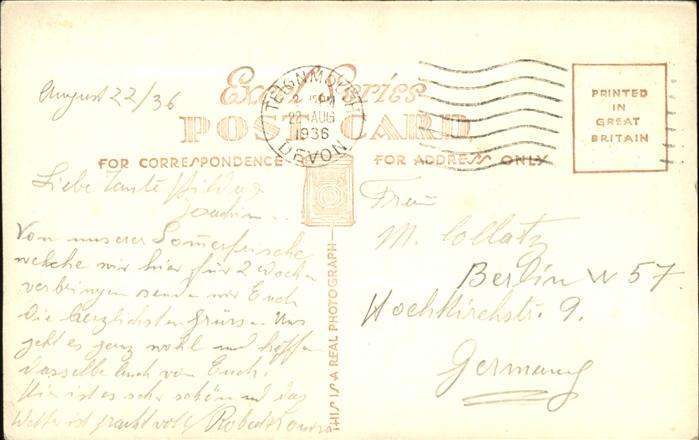 August 22/36
Excel Series
TEIGNMOUTH
22 AUG
1936
DEVON
POST CARD
PRINTED
IN
GREAT
BRITAIN
FOR CORRESPONDENCE
FOR ADDRESS ONLY
Liebe Tante Hilda &
Joachim..
Von unserer Sommerfrische
welche wir hier für 2 Wochen
verbringen senden wir Euch
die herzlichsten Grüsse. Uns
geht es ganz wohl und hoffen
dasselbe auch von Euch.
Hier ist es sehr schön und das
Wetter ist prachtvoll Robert Louisa
THIS IS A REAL PHOTOGRAPH
Frau
M. Collatz
Berlin W 57.
Hochkirchstr. 9.
Germany